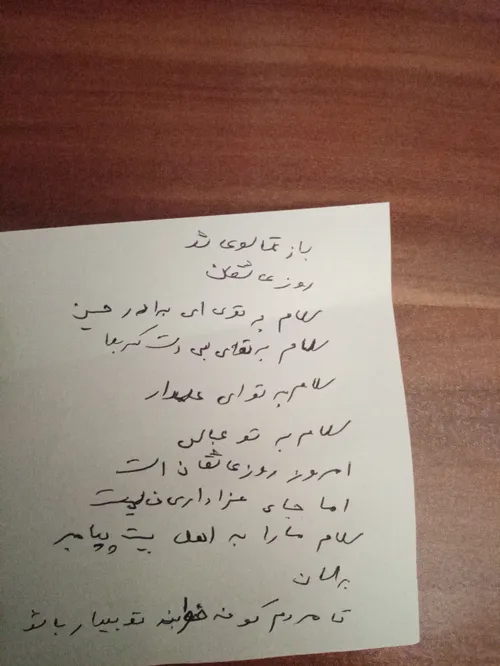 باز تاسوعای شد
روز عاشقان
سلام به توی ای برادر حسین
سلام به توای بی دست کربلا
سلام به تو ای علمدار
سلام به تو عباس
امروز روز عاشقان است
اما جای عزاداری نیست
سلام مارا به اهل بیت پیامبر
برسان
تا مردم کوفه خوابند تو بیدار باش